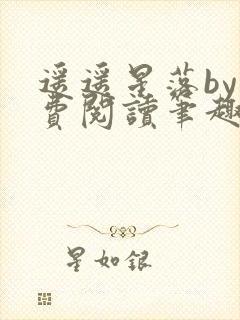 遥遥星落by
費閱讀筆趣
星如銀